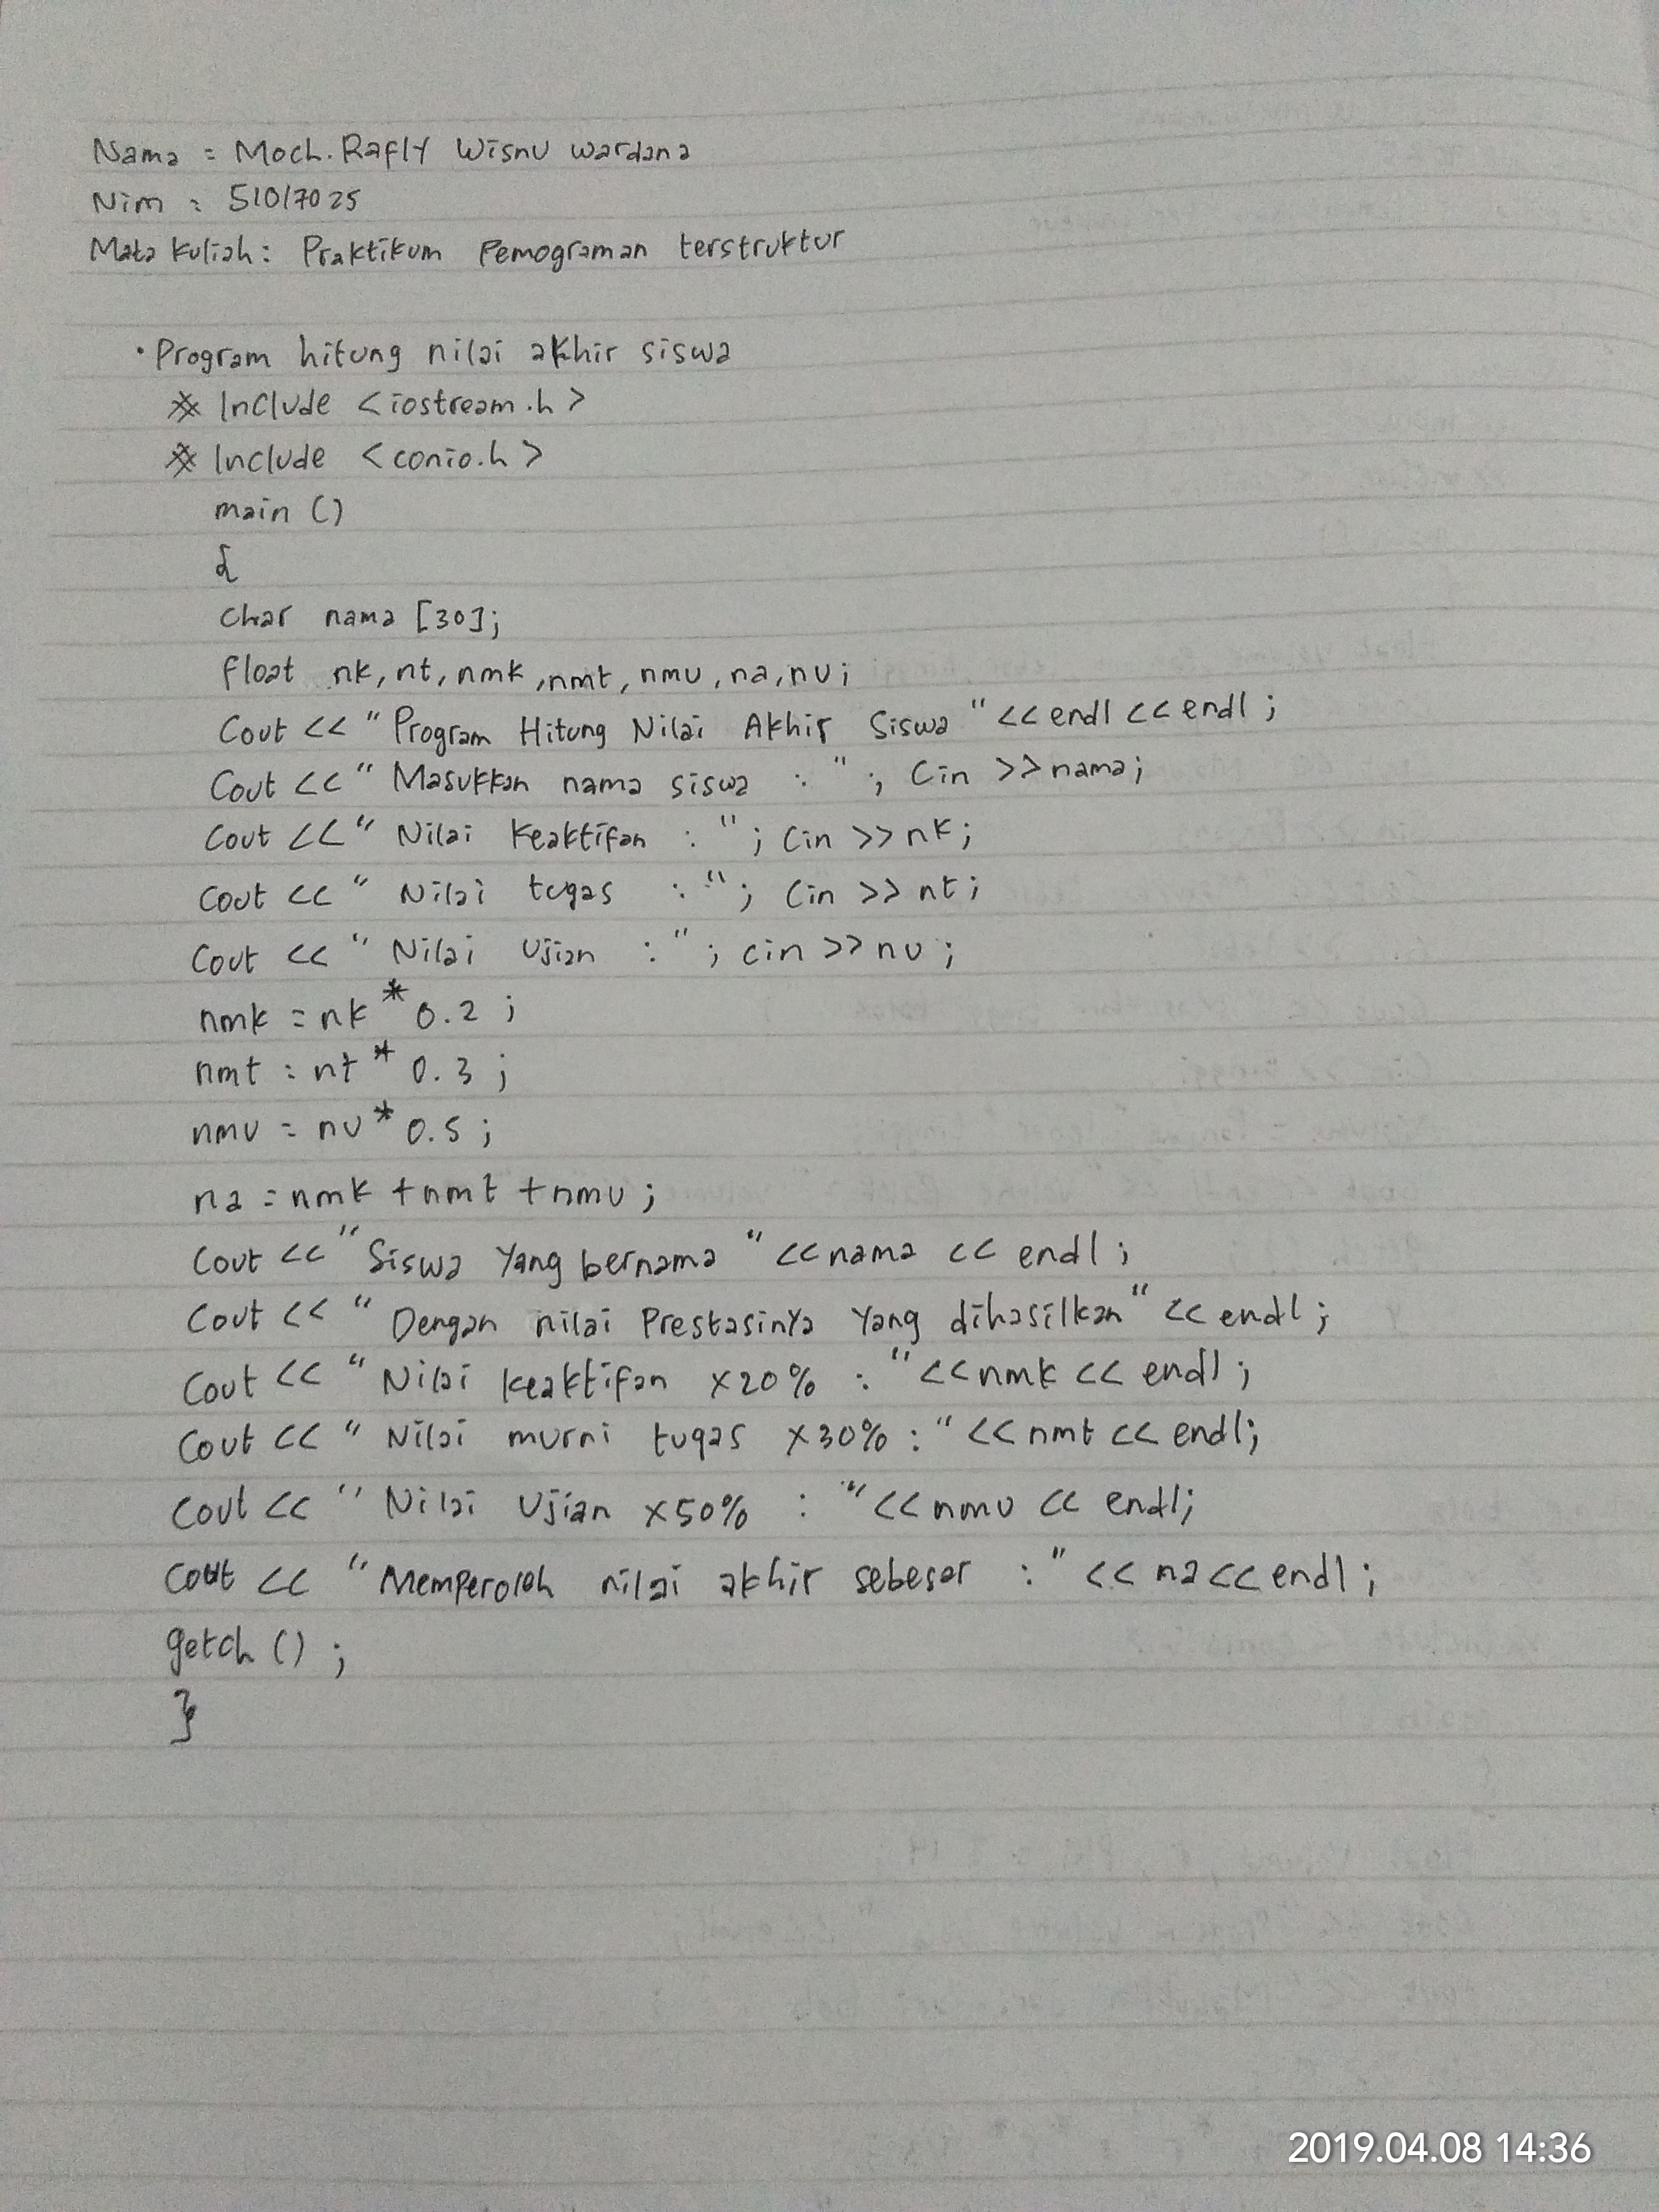 Nama = Moch. Rafly Wisnu wardana
Nim = 51017025
Mata kuliah : Praktikum Pemograman terstruktur
• Program hitung nilai akhir siswa
# Include <iostream.h>
# Include <conio.h>
main ()
{
Char nama [30];
float nk, nt, nmk, nmt, nmu, na, nu;
Cout << "Program Hitung Nilai Akhir Siswa" << endl << endl ;
Cout << "Masukkan nama siswa : "; Cin >> nama;
Cout << "Nilai Keaktifan : "; Cin >> nk;
Cout << "Nilai tugas : "; Cin >> nt;
Cout << "Nilai Ujian : "; cin >> nu;
nmk = nk * 0.2 ;
nmt = nt * 0.3 ;
nmu = nu * 0.5 ;
na = nmk + nmt + nmu ;
Cout << "Siswa Yang bernama " << nama << endl ;
Cout << "Dengan nilai Prestasinya Yang dihasilkan" << endl ;
Cout << "Nilai keaktifan x20% : " << nmk << endl ;
Cout << "Nilai murni tugas x30% : " << nmt << endl;
Cout << "Nilai Ujian x50% : " << nmu << endl;
Cout << "Memperoleh nilai akhir sebesar : " << na << endl ;
getch () ;
}
2019.04.08 14:36